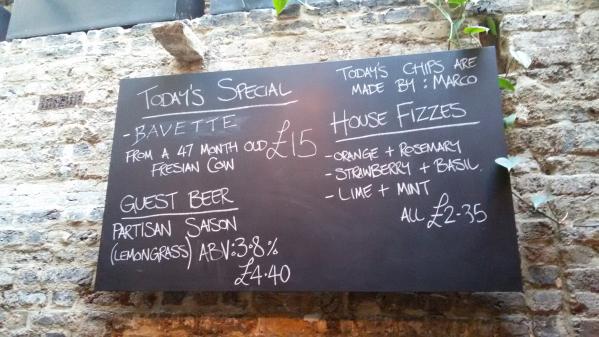 TODAY'S SPECIAL
- BAVETTE
FROM A 47 MONTH OLD £15
FRESIAN COW
GUEST BEER
PARTISAN SAISON
(LEMONGRASS) ABV:3.8%
£4.40
TODAY'S CHIPS ARE
MADE BY: MARCO
HOUSE FIZZES
- ORANGE + ROSEMARY
- STRAWBERRY + BASIL.
- LIME + MINT
ALL £2-35